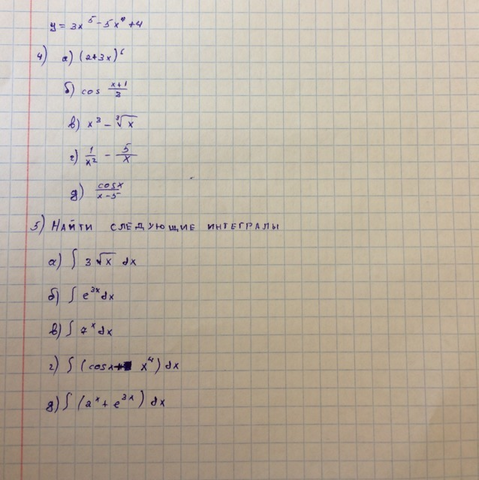 y = 3x⁵ - 5x⁴ + 4
4) а) (2+3x)⁶
б) cos (x+1)/3
в) x³ - ∛x
г) 1/x² - 5/x
д) cosx/(x-5)
5) НАЙТИ СЛЕДУЮЩИЕ ИНТЕГРАЛЫ
а) ∫ 3√x dx
б) ∫ e³ˣdx
в) ∫ 7ˣdx
г) ∫ (cosx + x⁴) dx
д) ∫ (2ˣ + e³ˣ) dx